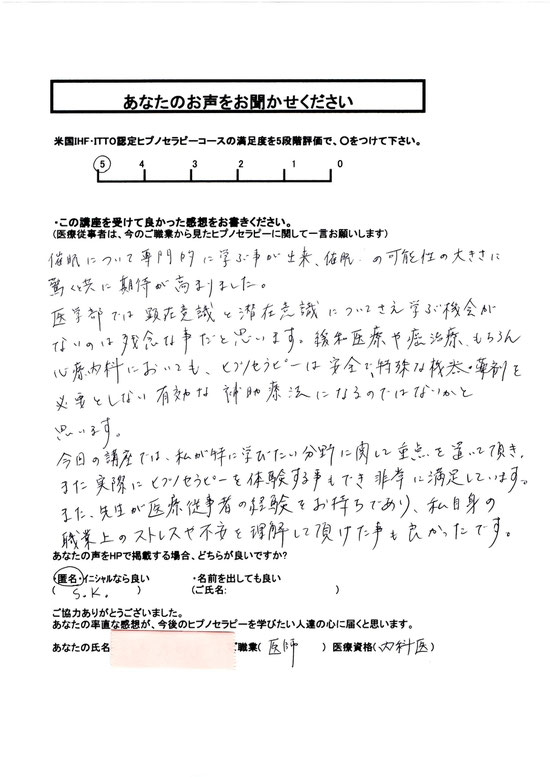 あなたのお声をお聞かせください
米国IHF・ITTO認定ヒプノセラピーコースの満足度を5段階評価で、〇をつけて下さい。
5 4 3 2 1 0
・この講座を受けて良かった感想をお書きください。
(医療従事者は、今のご職業から見たヒプノセラピーに関して一言お願いします)
催眠について専門的に学ぶ事が出来、催眠の可能性の大きさに
驚くと共に期待が高まりました。
医学部では顕在意識と潜在意識についてさえ学ぶ機会が
ないのは残念な事だと思います。緩和医療や癌治療、もちろん
心療内科においても、ヒプノセラピーは安全で、特殊な機器・薬剤を
必要としない有効な補助療法になるのではないかと
思います。
今日の講座では、私が特に学びたい分野に関して重点を置いて頂き、
また実際にヒプノセラピーを体験する事もでき非常に満足しています。
また、先生が医療従事者の経験をお持ちであり、私自身の
職業上のストレスや不安を理解して頂けた事も良かったです。
あなたの声をHPで掲載する場合、どちらが良いですか?
・匿名・イニシャルなら良い ・名前を出しても良い
( S.K. ) (ご氏名: )
ご協力ありがとうございました。
あなたの率直な感想が、今後のヒプノセラピーを学びたい人達の心に届くと思います。
あなたの氏名 ご職業( 医師 ) 医療資格( 内科医 )